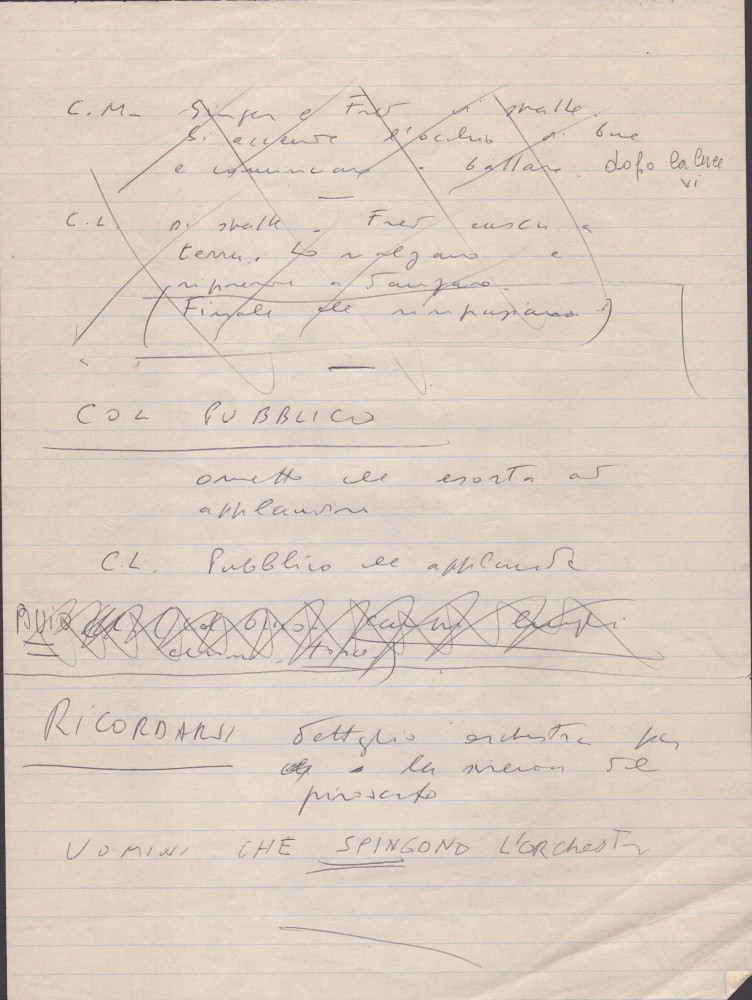 C.M. Ginger e Fred di spalle.
Si accende l'occhio di bue
e cominciano a ballare. dopo la luce
vi
C.L. di spalle. Fred casca a
terra. Lo rialzano e
riprende a danzare.
(Finale che ringraziano)
COL PUBBLICO
ometto che esorta ad
applaudire
C.L. Pubblico che applaude
BUIO
RICORDARSI dettaglio orchestra per
la sirena del
piroscafo
UOMINI CHE SPINGONO L'ORCHESTRA